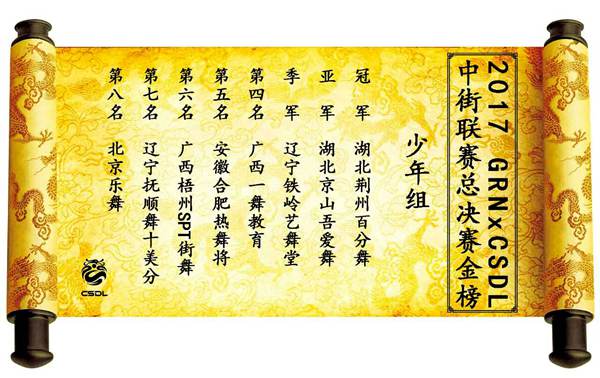 2017 GRNxCSDL
中街联赛总决赛金榜
少年组
冠军 湖北荆州百分舞
亚军 湖北京山吾爱舞
季军 辽宁铁岭艺舞堂
第四名 广西一舞教育
第五名 安徽合肥热舞将
第六名 广西梧州SPT街舞
第七名 辽宁抚顺舞十美分
第八名 北京乐舞
CSDL